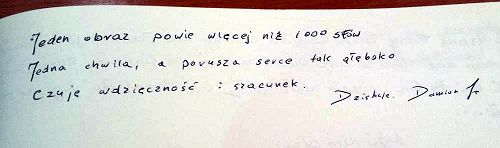 Jeden obraz powie więcej niż 1000 słów
Jedna chwila, a porusza serce tak głęboko
Czuję wdzięczność i szacunek.
Dziękuję. Damian